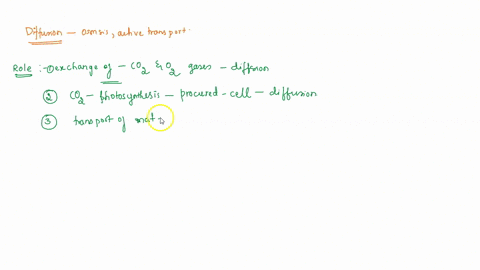 Diffusion — osmosis, active transport.
Role :- ① exchange of — CO2 & O2 gases — diffusion
② CO2 — photosynthesis — procured - cell — diffusion
③ transport of mat